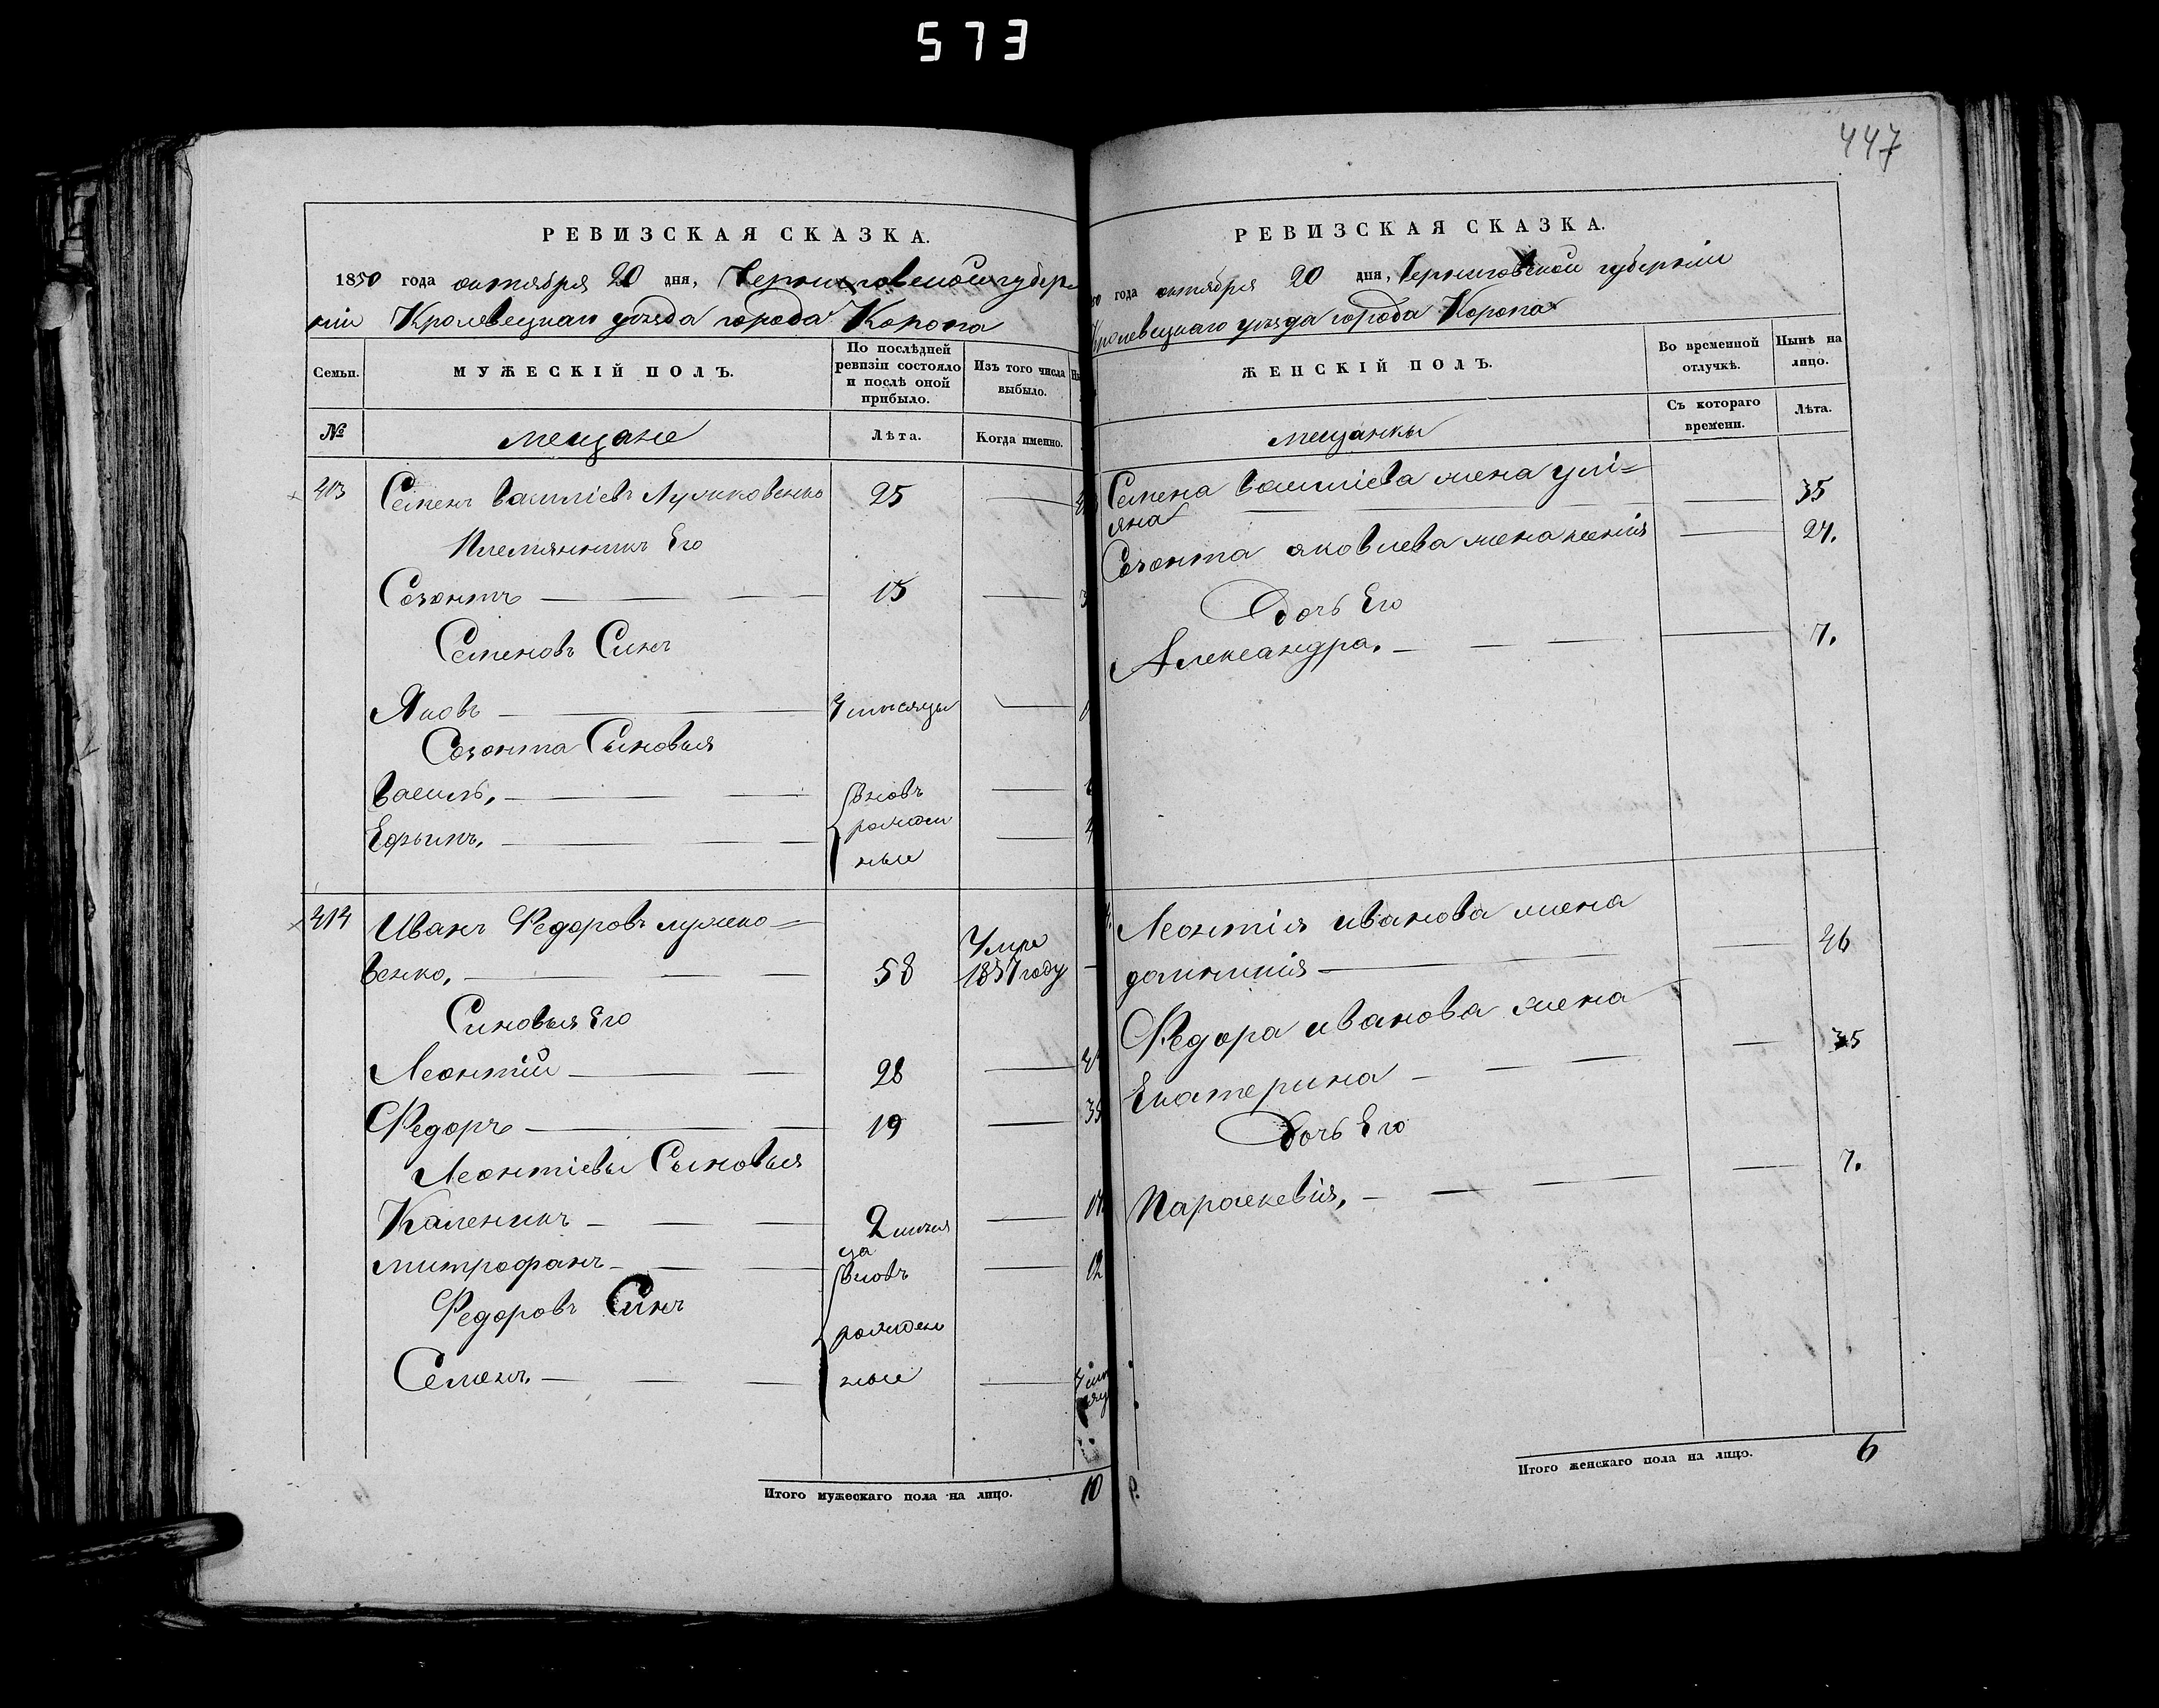 573
447
РЕВИЗСКАЯ СКАЗКА.
1850 года октября 20 дня, Черниговской губер
ніи Кролевецкаго уѣзда города Коропа
Семьи.
МУЖЕСКІЙ ПОЛЪ.
По послѣдней ревизіи состояло и послѣ оной прибыло.
Изъ того числа выбыло.
№
мещане
Лѣта.
Когда именно.
413 Семенъ Василіевъ 25
Племянникъ Его
Созонтъ 15
Семеновъ Синъ
Яковъ 4 месяцы
Созонта Сыновья
Василь,
вновь
Ефимъ,
рожден
ные
414 Иванъ Федоровъ лужко=
венко, 58 Умре 1837 году
Синовья Его
Леонтій 28
Федоръ 19 35
Леонтіевы Сыновья
Каленикъ 2 меся
ца
митрофанъ вновь 12
Федоровъ Синъ
рожден
Семенъ. ные
Итого мужескаго пола на лицо. 10
РЕВИЗСКАЯ СКАЗКА.
года октября 20 дня, Черниговской губерніи
Кролевецкаго уѣзда города Коропа
ЖЕНСКІЙ ПОЛЪ.
Во временной отлучкѣ.
Нынѣ на лицо.
мещанки
Съ котораго времени.
Лѣта.
Семена Василіева жена улі=
яна 35
Созонта яковлева жена ксенія 27.
Дочь Его
Александра. 7.
Леонтія иванова жена
домникія 46
Федора иванова жена
Екатерина 35
Дочь Его
Параскевія, 7.
Итого женскаго пола на лицо. 6